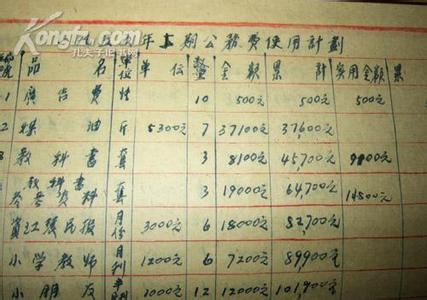 Kongfz.com
孔夫子旧书网
年上期公務費使用計劃
品名 單位 單價 數量 金額 累計 实用金額 累
1 廣告費 10 500元 500元 500元
2 煤油 斤 5300元 7 37100元 37,600元
3 教科書 套 3 8100元 45,700元 9800元
教科書
參考資料 套 3 19000元 64,700元 14800元
資江農民報 月份 3000元 6 18000元 82,700元
小學教師 月刊 1200元 6 7200元 89,900元
小朋友 半月刊 1000元 12 12000元 101,900元